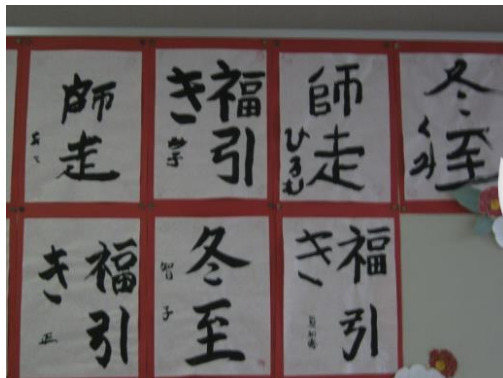 師走
福引
き
師走
ひろむ
冬至
くみ
福引
き
正
冬至
智子
福引
き